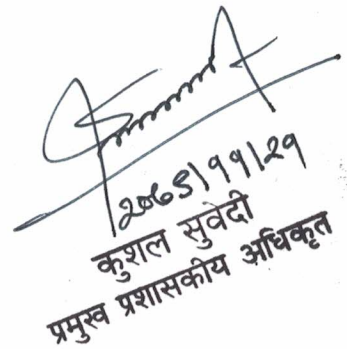 २०७९।११।२१
कुशल सुवेदी
प्रमुख प्रशासकीय अधिकृत